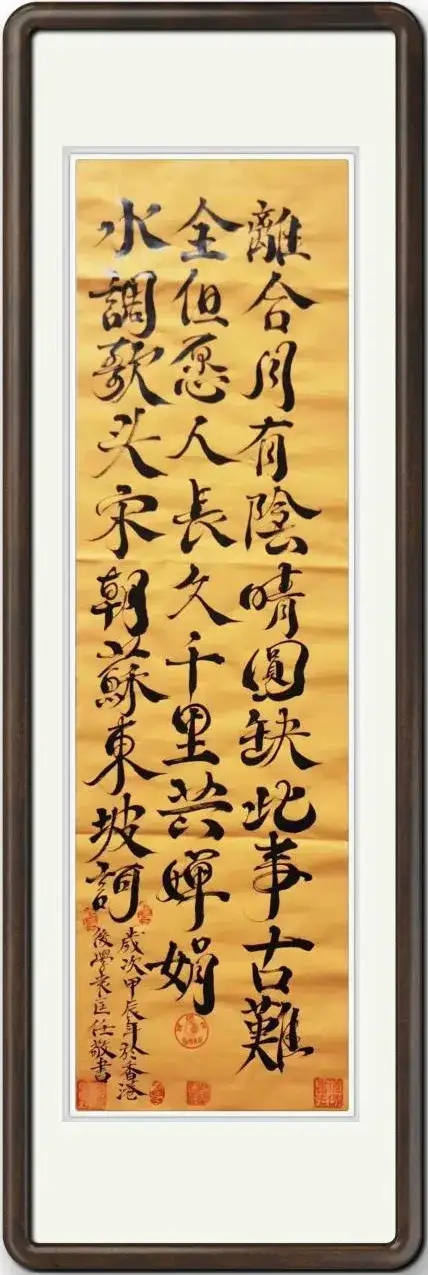 離合月有陰晴圓缺此事古難
全但愿人長久千里共嬋娟
水調歌头宋朝蘇東坡詞
歲次甲辰年於香港
後學袁匡任敬書